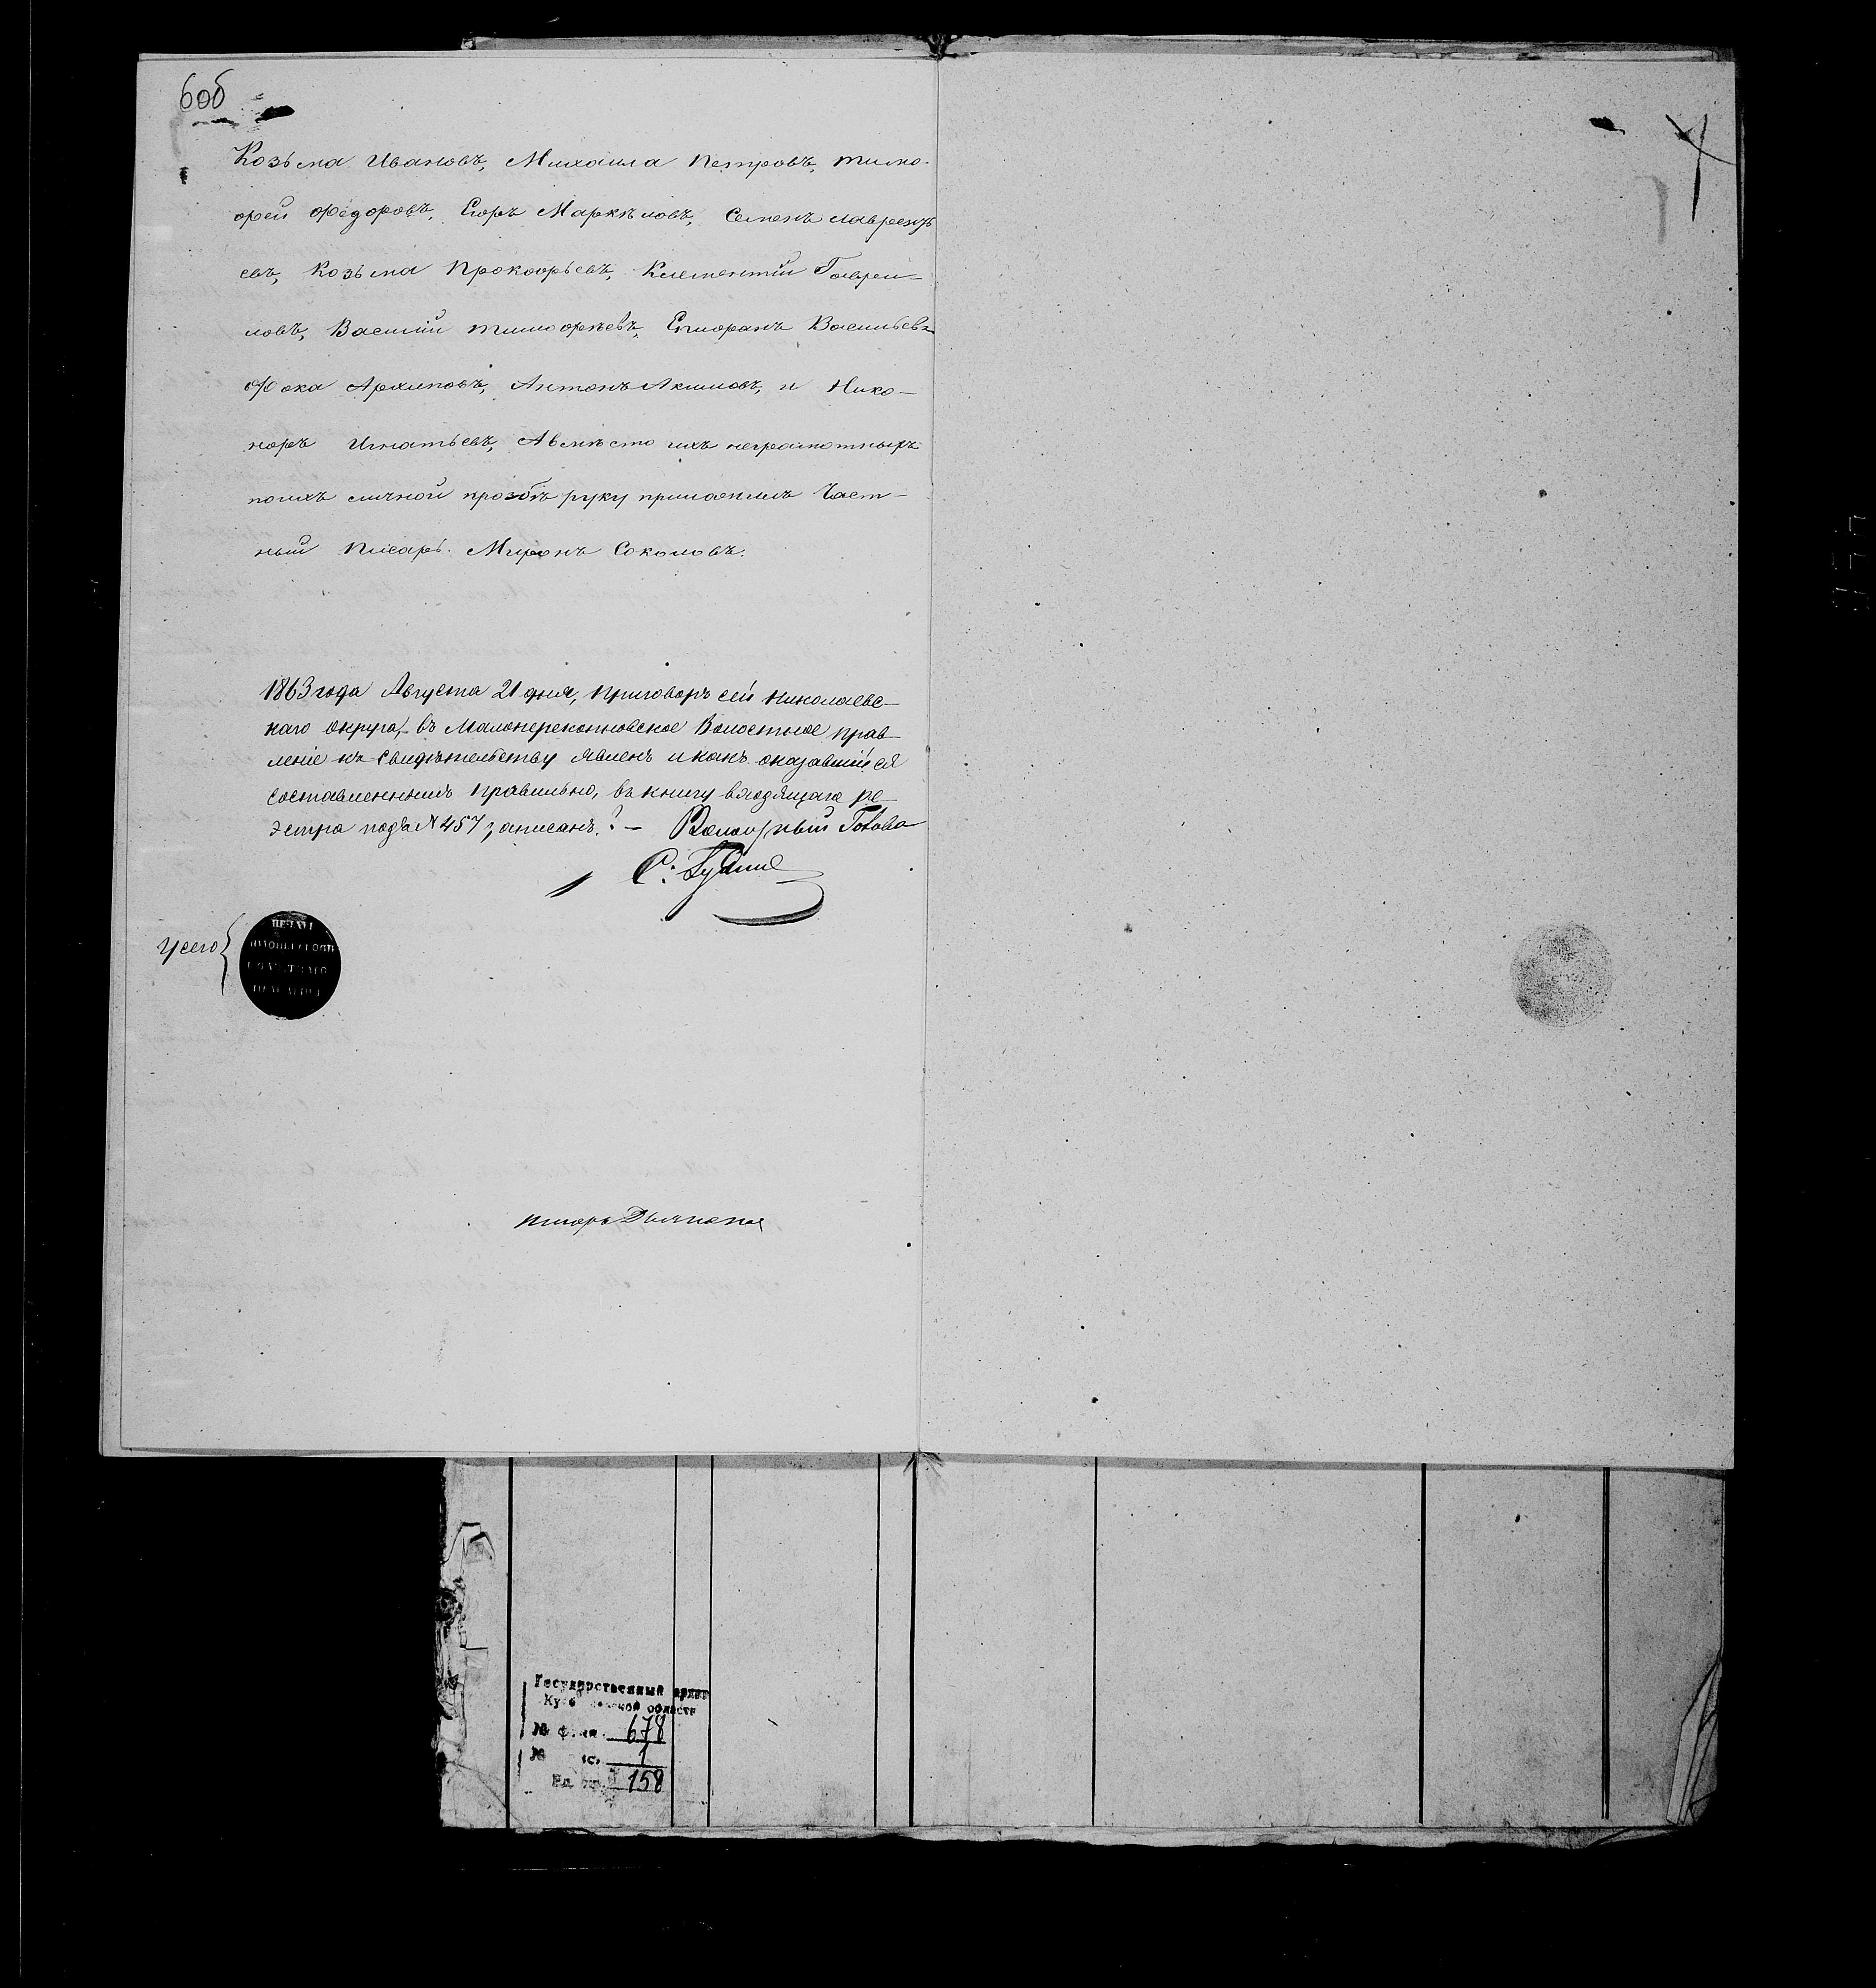 6об
Козьма Ивановъ, Михаила Петровъ, Тимо-
фей Федоровъ, Егоръ Маркѣловъ, Семенъ Лаврентъ
евъ, Козьма Прокофьевъ, Климентій Гаври-
ловъ, Василій Тимофѣевъ, Епифанъ Васильевъ
Фока Архиповъ, Антонъ Акимовъ, и Ника-
норъ Игнатьевъ, Авмѣсто ихъ неграмотныхъ
поихъ личной прозбѣ руку приложилъ Част-
ный писарь Миронъ Соколовъ.
1863 года Августа 21 дня, приговоръ сей Николаевс-
каго округа, въ Малоперекопновское Волостное прав
леніе къ свидѣтельству явленъ и какъ оказавшійся
составленнымъ правильно, въ книгу входящаго ре-
эстра подъ N 457 записанъ. – Волостный Голова
С:
У сего
ПЕЧАТ
писарь
Государственный архив
Куйбышевской области
№ фонд. 678
№ оп. 1
Ед. хр. 158